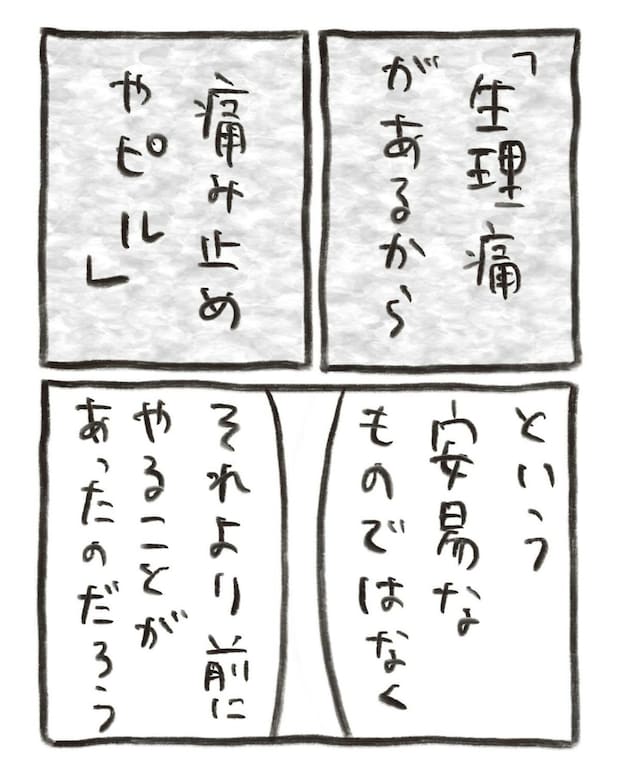 「生理痛
があるから
痛み止め
やピル」
という
安易な
ものではなく
それより前に
やることが
あったのだろう